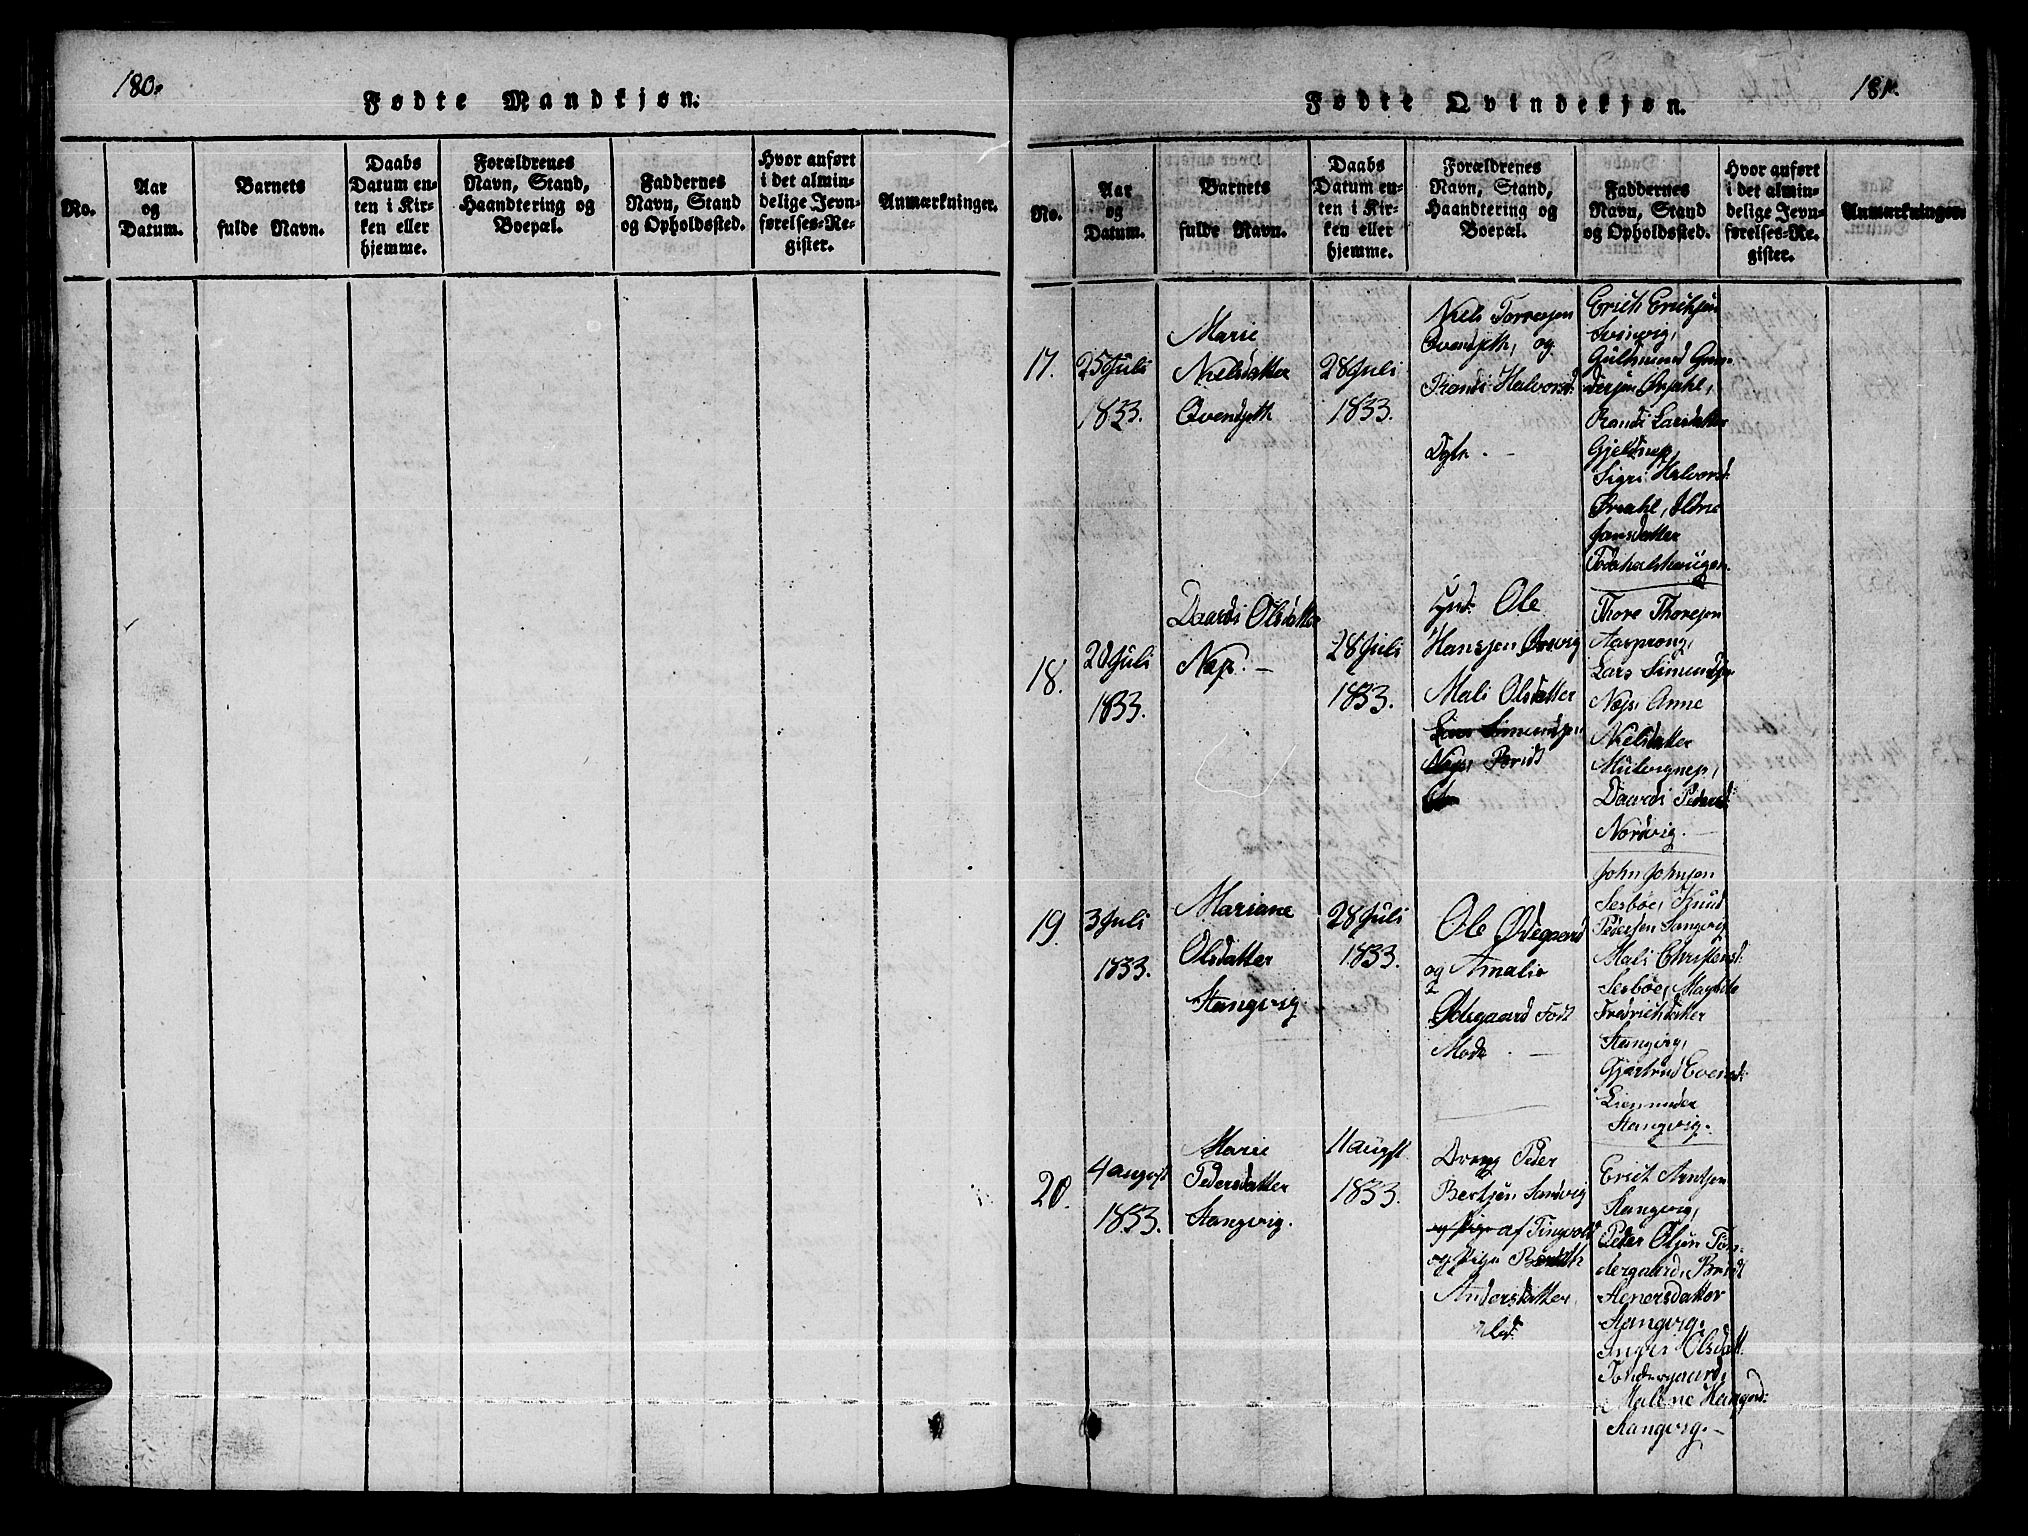 180.
Fødte Mandkjøn.
No.
Aar
og
Datum.
Barnets
fulde Navn.
Daabs
Datum en-
ten i Kir-
ken eller
hjemme.
Forældrenes
Navn, Stand,
Haandtering og
Boepæl.
Faddernes
Navn, Stand
og Opholdssted.
Hvor anført
i det almin-
delige Jevn-
førelses-Re-
gister.
Anmærkninger.
181.
Fødte Qvindekjøn.
No.
Aar
og
Datum.
Barnets
fulde Navn.
Daabs
Datum en-
ten i Kir-
ken eller
hjemme.
Forældrenes
Navn, Stand,
Haandtering og
Boepæl.
Faddernes
Navn, Stand
og Opholdssted.
Hvor anført
i det almin-
delige Jevn-
førelses-Re-
gister.
Anmærkninger.
17.
25 Juli
1833.
Marie
Nielsdatter
Qvendseth
28 Juli
1833.
Niels Torresen
Qvendseth, og
Randi Halvorsd
Erich Erichsen
Svinvig,
Guldmund Gun-
dersen Ørsahl,
Randi Larsdatter
Gjeldnes,
Sigri Halvorsd:
Ørsahl,
Jonsdatter
18.
20 Juli
1833.
Daardi Olsdatter
Næs. —
28 Juli
1833.
Ole
Hansen Ørevig
Mali Olsdatter
Lars Simensen
Næs, Beridt
Thore Thoresen
Aasprong,
Lars Simensen
Næs, Anne
Nielsdatter
Mulvignes,
Daardi Pedersd:
Nordvig. —
19.
3 Juli
1833.
Mariane
Olsdatter
Stangvig.
28 Juli
1833.
Ole Ødegaard
og Amalie
Ødegaard født
Mode. —
John Johnsen
Sæsbøe, Knud
Pedersen Sangvig
Mali Christensd:
Sesbøe, Magdele
Fredrichsdatter
Stangvig,
Gjertrud Evensd:
Stangvig.
20.
4 august
1833.
Marie
Pedersdatter
Stangvig.
11 augst
1833.
Dreng Peder
Bertsen Sandvig
og Pige af Tingvold
og Pige Beridth
Andersdatter
Erich Arntsen
Stangvig,
Peder Olsen Tøn-
dergaard, Beridt
Stangvig.
Inger Olsdatt
Tøndergaard,
Malene
Stangvig. —